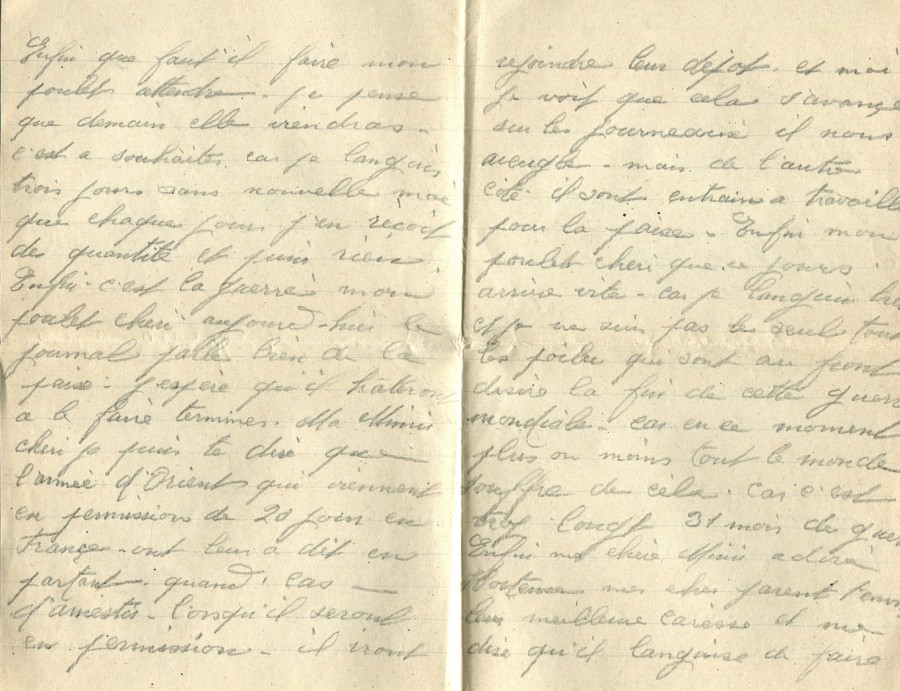 Enfin que faut'il faire mon
poulet attendre. je pense
que demain elle viendras.
c'est a souhaiter car je languis
trois jours sans nouvelle moi
que chaque jour j'en reçoit
des quantité et puis rien.
Enfin c'est la guerre mon
poulet cheri aujourd-hui le
journal parle bien de la
paise. j'espère qu'il hâteront
a la faire terminer. Ma Mimi
cheri je puis te dire que
l'armée d'Orient qui viennent
en permission de 20 jour en
France ont leur a dit en
partant. quand' cas
d'amestis. lorsqu'il seront
en permission. il iront
rejoindre leur depot. et moi
je voit que cela s'avance
sur les journeaux il nous
aveugle. mais de l'autre
côté il sont entrain a travaill
pour la paise. Enfin mon
poulet cheri que ce jours
arrive vite. car je languis
et je ne suis pas le seul tout
les poilu qui sont au front
désire la fin de cette guerr
mondiale. car en ce moment
plus ou moins tout le monde
souffre de cela. car c'est
trop longt 31 mois de guer
Enfin ma chère Mimi adoré
Hortense mes cher parent t'envoi
leur meilleure caresse et me
dise qu'il languise de faire